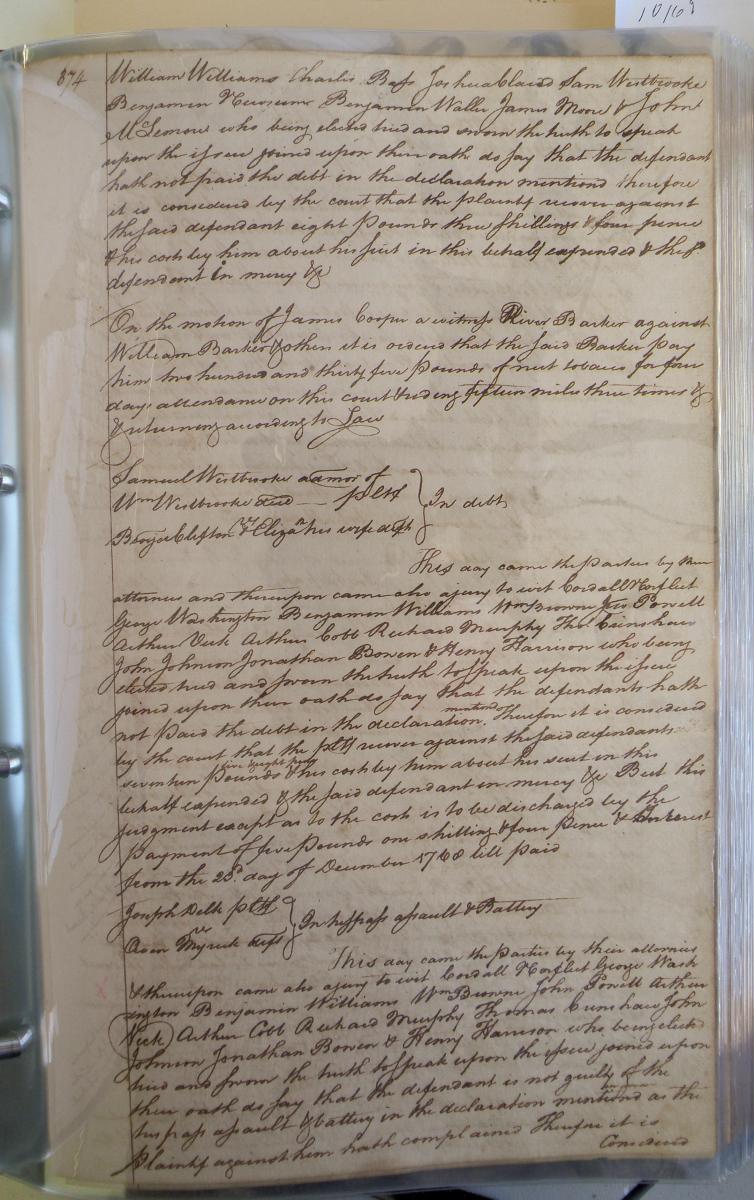 374
William Williams Charles Bass Joshua Claud Sam Westbrooke
Benjamin Newsume Benjamin Waller James Moore & John
McLemore who being elected tried and sworn the truth to speak
upon the issue joined upon their oath do say that the defendant
hath not paid the debt in the declaration mentiond therefore
it is considered by the court that the plaintif recover against
the said defendant eight Pounds three shillings & four pence
& his costs by him about his suit in this behalf expended & the sd
defendant in mercy &c
On the motion of James Cooper a witness River Barker against
William Barker & others it is ordered that the said Barker pay
him two hundred and thirty five Pounds of neet tobacco for four
days attendance on this court & riding fifteen miles three times &
& returning according to Law
Samuel Westbrooke admor of
Wm Westbrooke decd — pltf
In debt
vs
Clifton & Eliza his wife defts
This day came the Parties by their
attornies and thereupon came also a jury to wit Cordall Norfleet
George Washington Benjamin Williams Wm Browne Jno Powell
Arthur Vick Arthur Cobb Richard Murphy Thos Crenshaw
John Johnson Jonathan Bowen & Henry Harrison who being
elected tried and sworn the truth to speak upon the issue
joined upon their oath do say that the defendants hath
not paid the debt in the declaration mentiond. Therefore it is considered
by the court that the pltf recover against the said defendants
seventeen Pounds five & eight pence & his costs by him about his suit in this
behalf expended & the said defendant in mercy &c But this
judgment except as to the costs is to be discharged by the
Payment of five Pounds one shilling & four pence & Interest
from the 23d day of December 1760 till paid
Joseph Delk pltf
vs
In trespass assault & Battery
Owen Myrick deft
This day came the Parties by their attornies
& thereupon came also a jury to wit Cordall Norfleet George Wash
ington Benjamin Williams Wm Browne John Powell Arthur
Vick Arthur Cobb Richard Murphy Thomas Crenshaw John
Johnson Jonathan Bowen & Henry Harrison who being elected
tried and sworn the truth to speak upon the issue joined upon
their oath do say that the defendant is not guilty of the
trespass assault & battery in the declaration mentiond as the
Plaintif against him hath complained Therefore it is
Considered